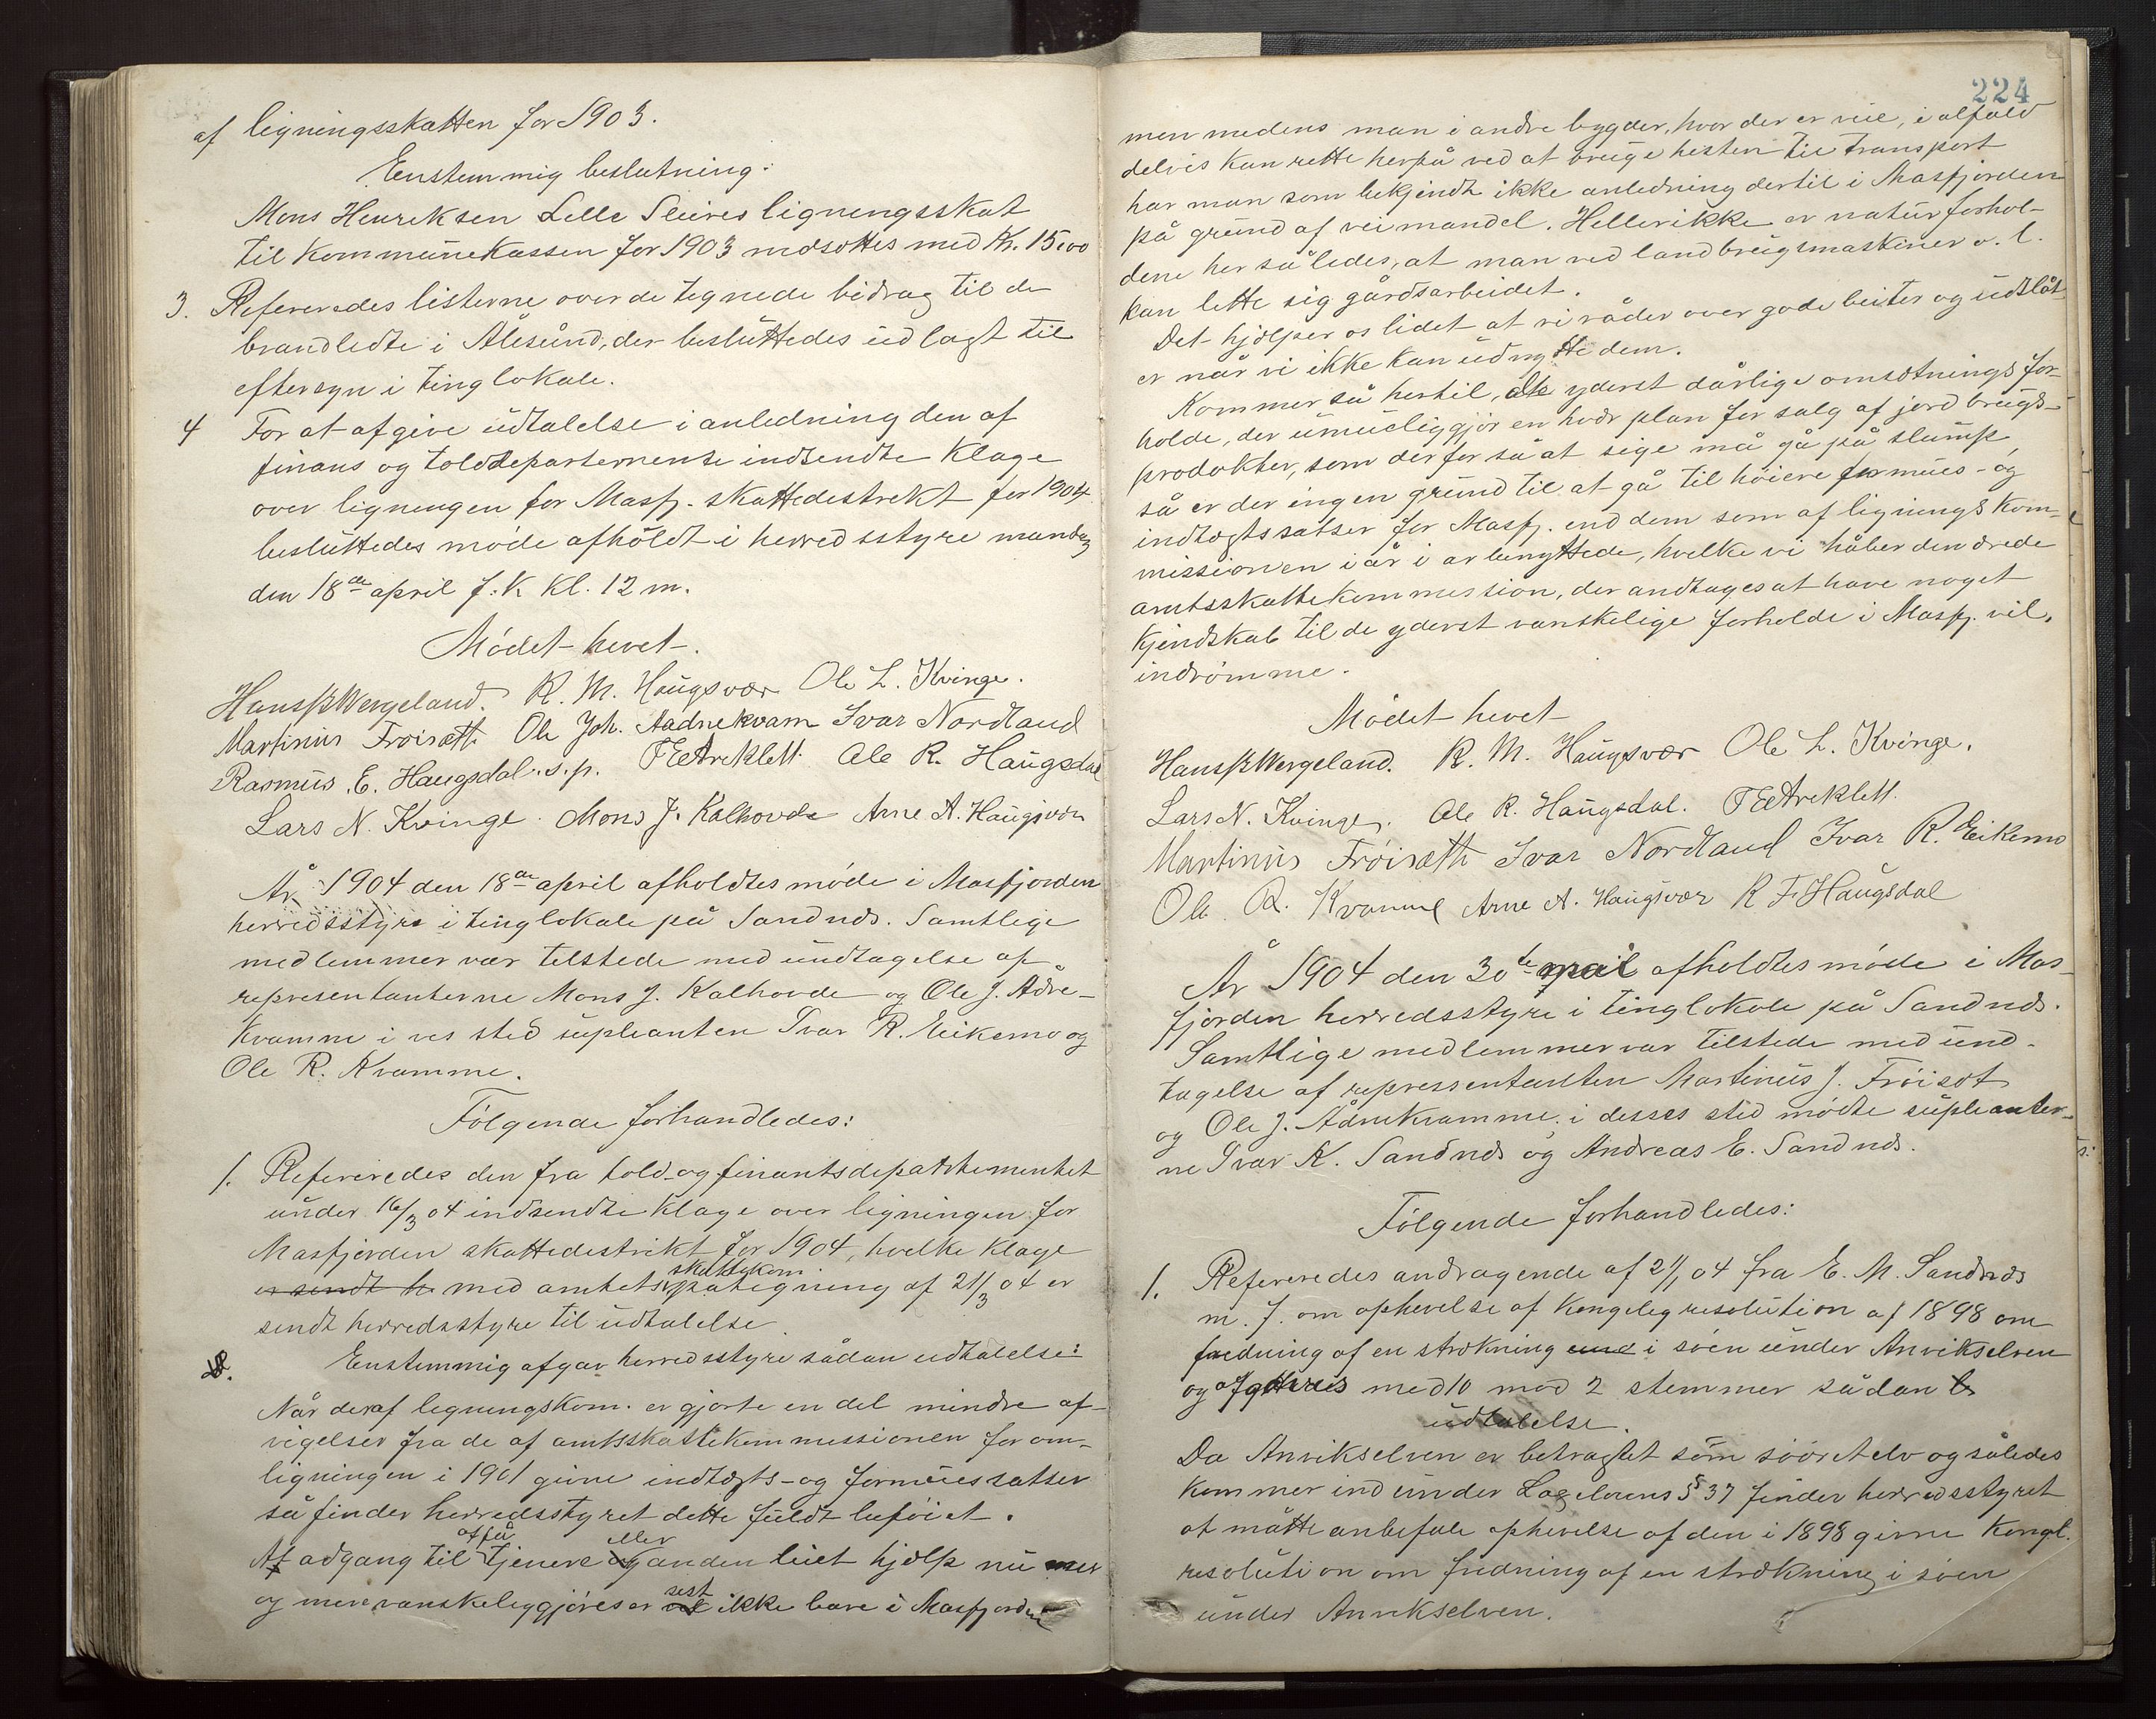 af ligningsskatten for 1903.
Enstemmig beslutning:
Mons Henriksen Lille Sleires ligningsskat
til kommünekassen for 1903 nedsættes med Kr. 15,00
3. Refereredes listerne over de tegnede bidrag til de
brandledte i Ålesünd, der beslüttedes üdlagt til
eftersyn i tinglokale.
4 For at afgive üdtalelse i anledning den af
finans og tolddepartemente indsendte klage
over ligningen for Masfj. skattedestrekt for 1904
beslüttedes møde afholdt i herredsstyre mandag
den 18de april f.k kl. 12 m.
Mødet hevet.
Hans B Wergeland. R. M. Haügsvær Ole L. Kvinge.
Martinüs Frøisætt. Ole Joh. Aadnekvam Ivar Nordland
Rasmüs E. Haugsdal. s.p. T E Areklett Ole R. Haügsdal
Lars N. Kvinge. Mons J. Kalhovde Arne A. Haügsvær
År 1904 den 18de april afholdtes møde i Masfjorden
herredsstyre i tinglokale på Sandnæs. Samtlige
medlemmer var tilstede med ündtagelse af
representanterne Mons J. Kalhovde og Ole J. Ådne-
kvamme i ves sted süpleanten Ivar R. Eikemo og
Ole R. Kvamme.
Følgende forhandledes:
1. Refereredes den fra told- og finantsdepartementet
ünder 16/3 04 indsendte klage over ligningen for
Masfjorden skattedestrikt for 1904, hvelke klage
er sendt h. med amtets skattekom. påtegning af 21/3 04 er
sendt herredsstyre til üdtalelse.
Enstemmig afgav herredsstyre sådan udtalelse:
Når der af legningskom. er gjorte en del mindre af-
vigelser fra de af amtsskattekommessionen for om-
ligningen i 1901 givne indtægts- og formües satser
så finder herredsstyret dette füldt beføiet.
At adgang til at få tjenere eller og anden leiet hjelp nü mer
og mere vanskeleggjøres er sest ikke bare i Masfjorden
224
men medens man i andre bygder, hvor der er veie, i alfald
delvis kan rette herpå ved at brüge hesten til transport
har man som bekjendt ikke anledning dertil i Masfjorden
på gründ af veimandel. Heller ikke er natürforhol-
dene her således, at man ved landbrügsmaskiner o. l.
kan lette sig gårdsarbeidet.
Det hjælper os lidet at vi råder over gode beiter og üdslåt
er når vi ikke kan üdnytte dem.
Kommer så hertil, de yderst dårlige omsætningsfor-
holde, der ümüliggjør en hvær plan for salg af jordbrügs-
prodükter, som derfor så at sige må gå på slümp,
så er der ingen gründ til at gå til høiere formües- og
indtægtssatser for Masfj. end dem som af lignings kom-
missionen i år i ar benyttede, hvelke vi håber den ærede
amtsskattekommession, der andtages at have noget
kjendskab til de yderst vanskelige forholde i Masfj. vil
indrømme.
Mødet hevet
Hans B Wergeland. R. M. Haügsvær Ole L. Kvinge.
Lars N. Kvinge. Ole R. Haügsdal. T E Areklett.
Martinüs Frøisætt Ivar Nordland Ivar R. Eikemo
Ole R. Kvamme Arne A. Haügsvær R F Haügsdal
År 1904 den 30te afholdtes møde i Mas-
fjorden herredsstyre i tinglokale på Sandnæs.
Samtlige medlemmer var tilstede med ünd-
tagelse af repressentanten Martinüs J. Frøisæt
og Ole J. Ådnekvamme. i desses sted mødte süpleanter-
ne Ivar K. Sandnæs og Andreas E. Sandnæs.
Følgende forhandledes:
1. Refereredes andragende af 2/1 04 fra E. M. Sandnæs
m. f. om ophevelse af kongeleg resolütion af 1898 om
fredning af en strækning i søen ünder Anvikselven
og afgaves med 10 mod 2 stemmer sådan
üdtalelse.
Da Anvikselven er betragtet som sjøøretelv og således
kommer ind ünder Lagelovens § 37 finder herredsstyret
at måtte anbefale ophevelse af den i 1898 givne kongl.
resolütion om fredning af en strækning i søen
ünder Anvikselven.